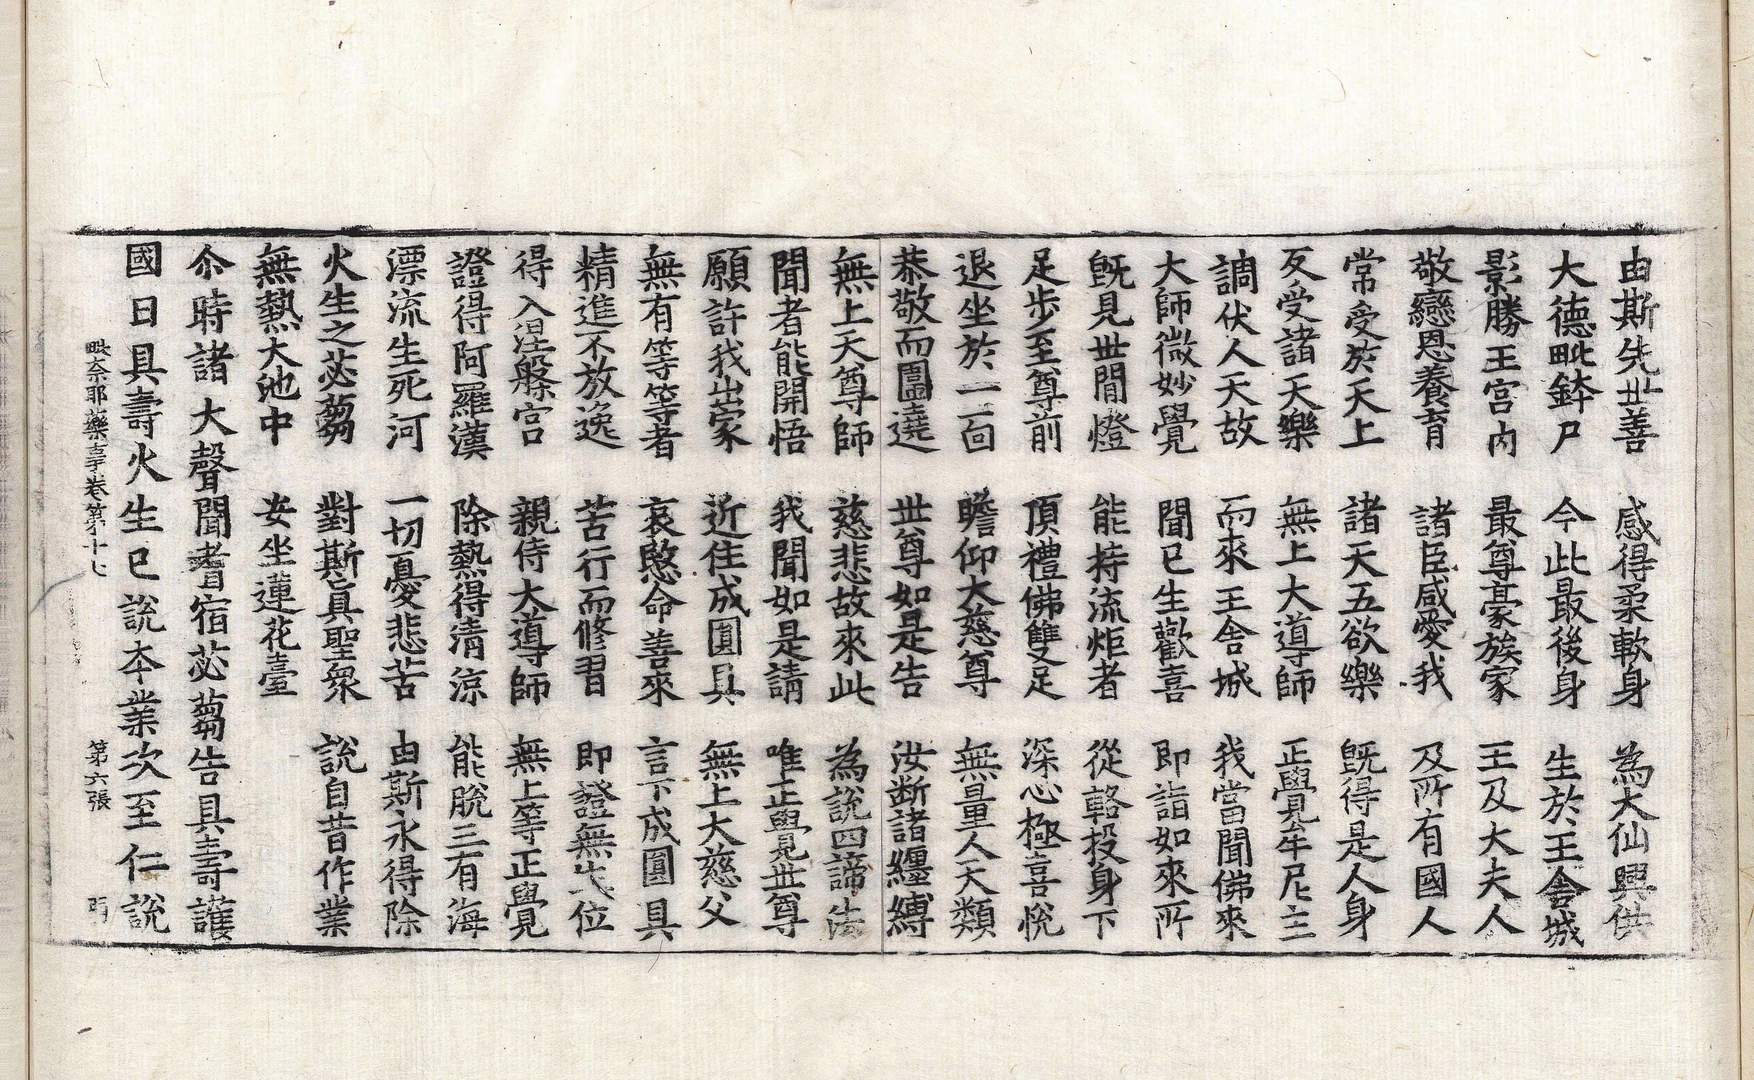 由斯先世善　感得柔軟身　為大仙興供
大德毗鉢尸　今此最後身　生於王舍城
影勝王宮内　最尊豪族家　王及大夫人
敬戀恩養育　諸臣咸愛我　及所有國人
常受於天上　諸天五欲樂　旣得是人身
反受諸天樂　無上大導師　正覺牟尼主
調伏人天故　而來王舍城　我當聞佛來
大師微妙覺　聞已生歡喜　即詣如來所
旣見世間燈　能持流炬者　從輅投身下
足步至尊前　頂禮佛雙足　深心極喜悅
退坐於一面　瞻仰大慈尊　無量人天類
恭敬而圍遶　世尊如是告　汝斷諸纏縛
無上天尊師　慈悲故來此　為說四諦法
聞者能開悟　我聞如是請　唯正覺世尊
願許我出家　近住成圓具　無上大慈父
無有等等者　哀愍命善來　言下成圓具
精進不放逸　苦行而修習　即證無生位
得入涅槃宮　親侍大導師　無上等正覺
證得阿羅漢　除熱得清涼　能脫三有海
漂流生死河　一切憂悲苦　由斯永得除
火生之苾蒭　對斯真聖衆　說自昔作業
無熱大池中　安坐蓮花臺
尒時諸大聲聞耆宿苾蒭告具壽護
國曰具壽火生已說夲業次至仁說
毗奈耶藥事卷第十七　第六張